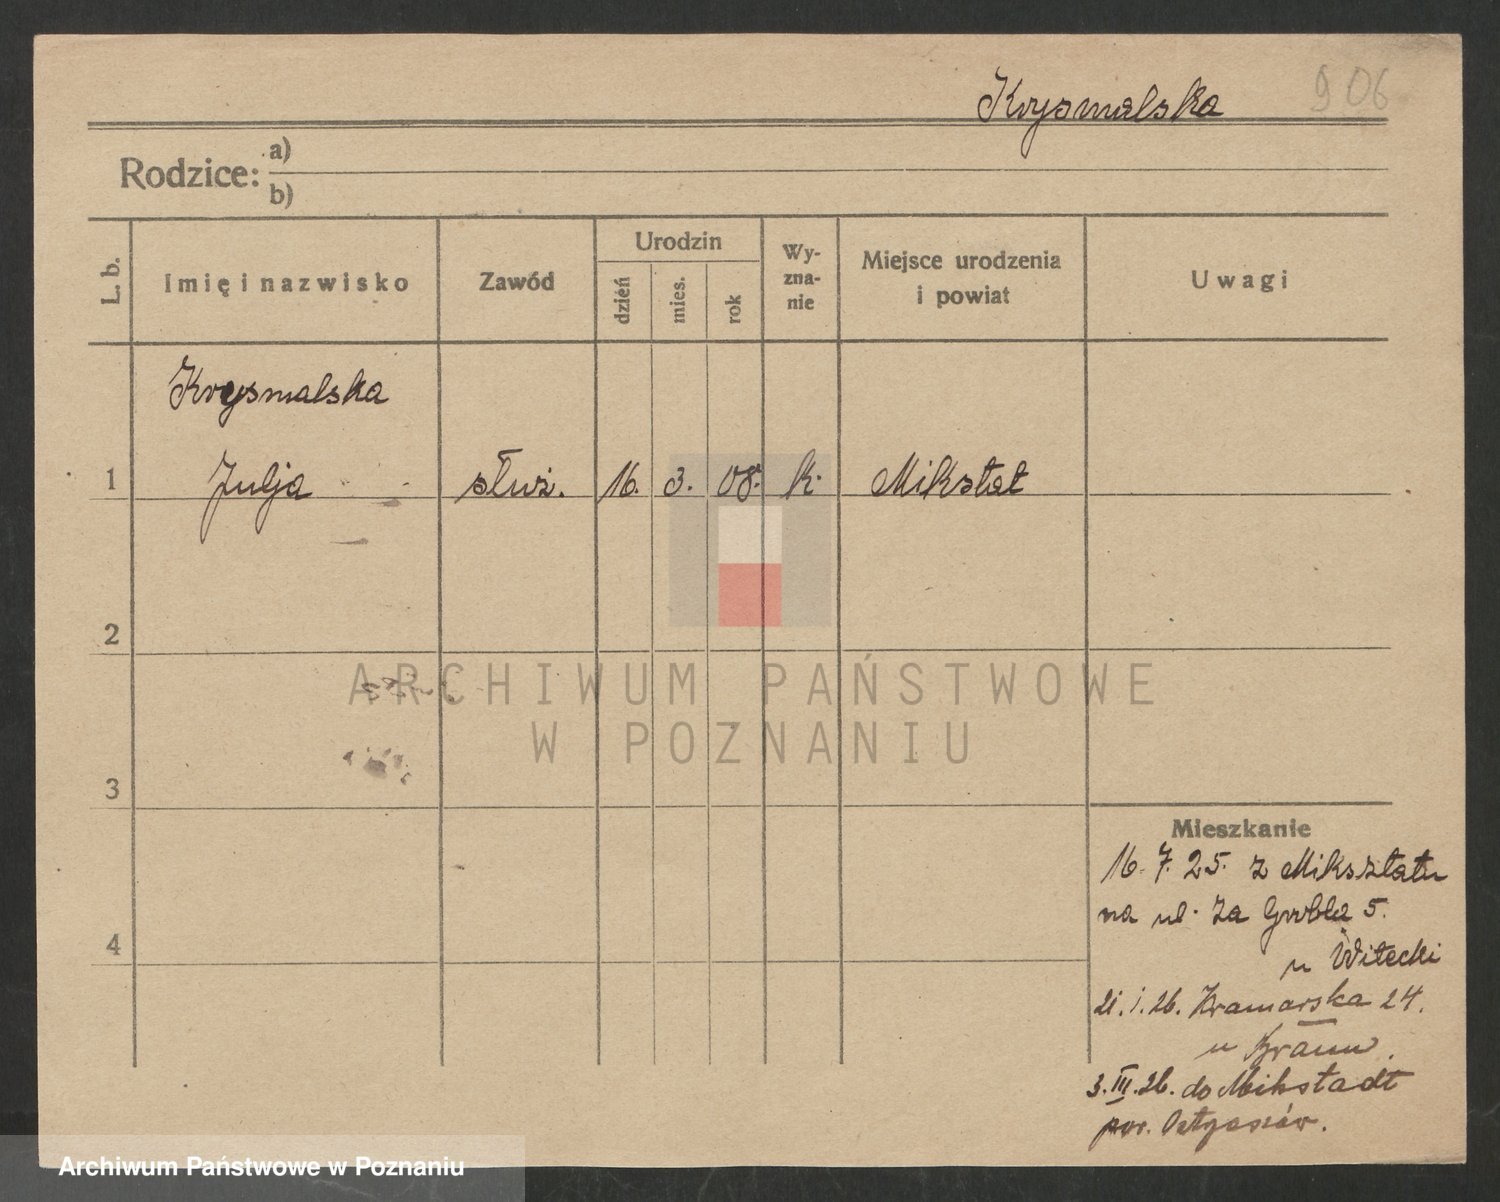 Krysmalska 906
Rodzice: a)
b)
L. b. Imię i nazwisko Zawód Urodzin dzień mies. rok Wy-zna-nie Miejsce urodzenia i powiat Uwagi
Krysmalska
1 Julja służ. 16. 3. 08. k. Mikstat
2
3
4
Mieszkanie
16. 7. 25. z Miksztatu
na ul. Za Groblą 5.
u Witecki
21. 1. 26. Kramarska 24.
u
3. III. 26. do Mikstadt
pow.
ARCHIWUM PAŃSTWOWE
W POZNANIU
Archiwum Państwowe w Poznaniu